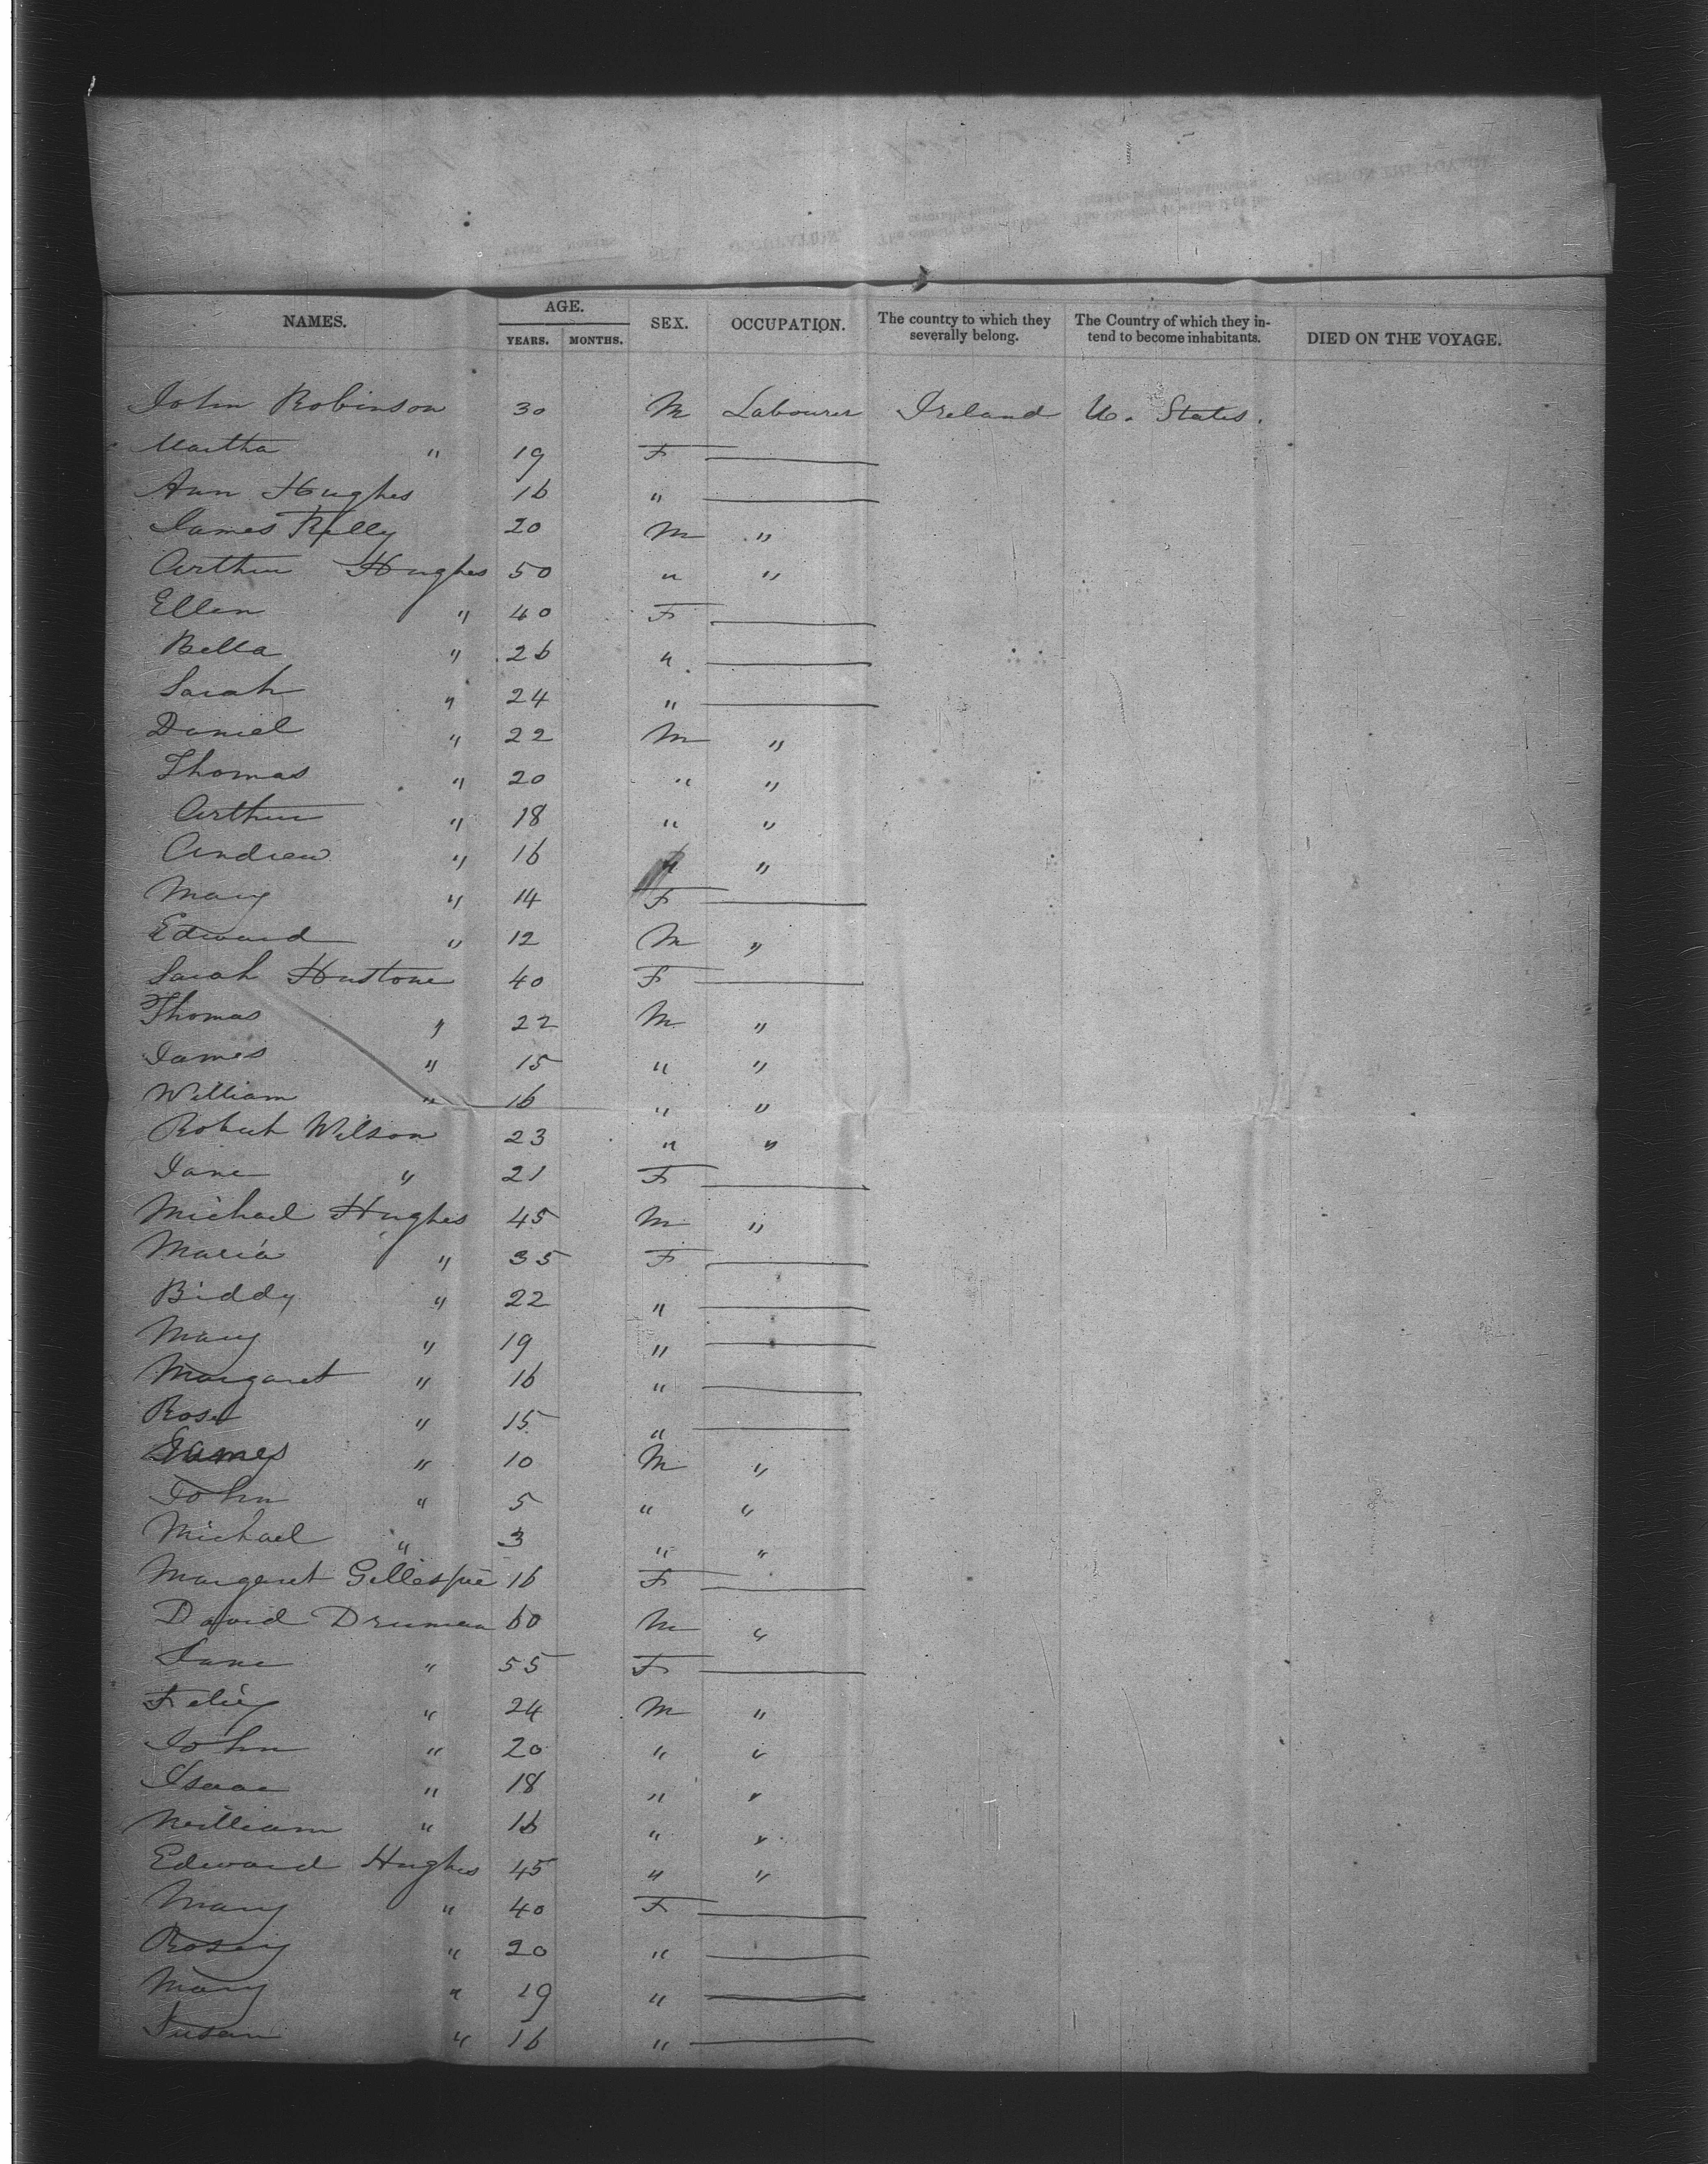 NAMES. AGE. SEX. OCCUPATION. The country to which they severally belong. The Country of which they intend to become inhabitants. DIED ON THE VOYAGE.
YEARS. MONTHS.
John Robinson 30 M Labourer Ireland U. States.
Martha " 19 F
Ann Hughes 16 "
James Kelly 20 M "
Arthur Hughes 50 " "
Ellen " 40 F
Bella " 26 "
Sarah " 24 "
Daniel " 22 M "
Thomas " 20 " "
Arthur " 18 " "
Andrew " 16 " "
Mary " 14 F
Edward " 12 M "
Sarah Hustone 40 F
Thomas " 22 M "
James " 15 " "
William " 16 " "
Robert Wilson 23 " "
Jane " 21 F
Michael Hughes 45 M "
Maria " 35 F
Biddy " 22 "
Mary " 19 "
Margaret " 16 "
Rose " 15 "
James " 10 M "
John " 5 " "
Michael " 3 " "
Margaret Gillespie 16 F
David 60 M "
Jane " 55 F
" 24 M "
John " 20 " "
Isaac " 18 " "
William " 16 " "
Edward Hughes 45 " "
Mary " 40 F
Rosey " 20 "
Mary " 19 "
Susan " 16 "